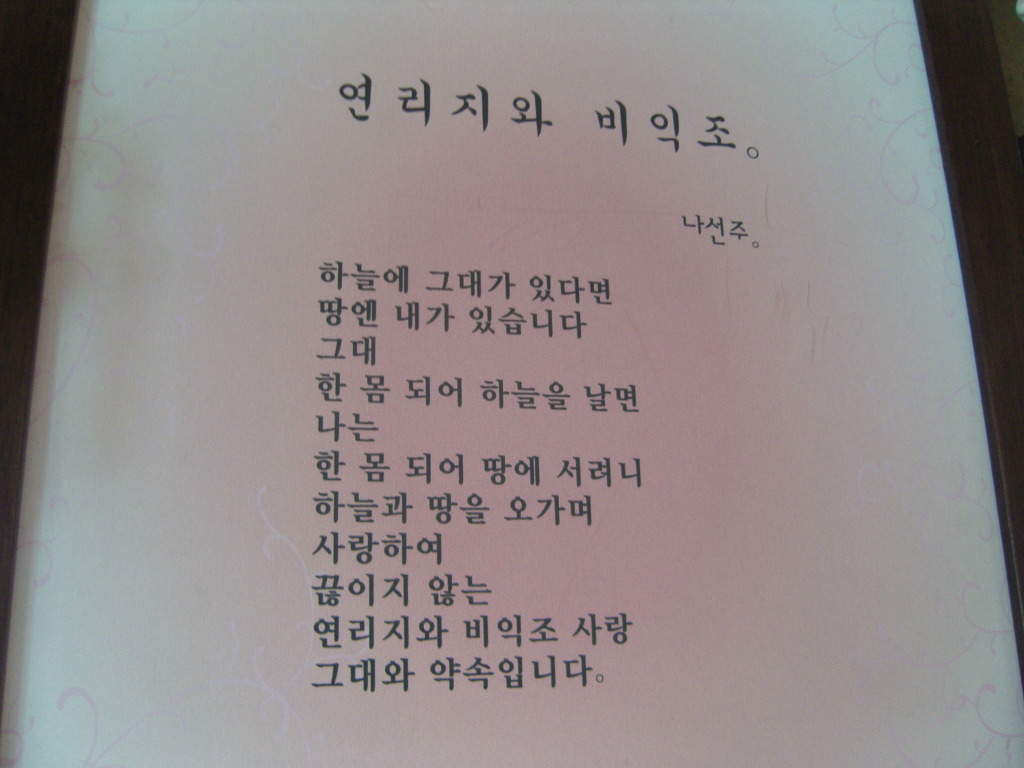 연리지와 비익조。
나선주。
하늘에 그대가 있다면
땅엔 내가 있습니다
그대
한 몸 되어 하늘을 날면
나는
한 몸 되어 땅에 서려니
하늘과 땅을 오가며
사랑하여
끊이지 않는
연리지와 비익조 사랑
그대와 약속입니다。